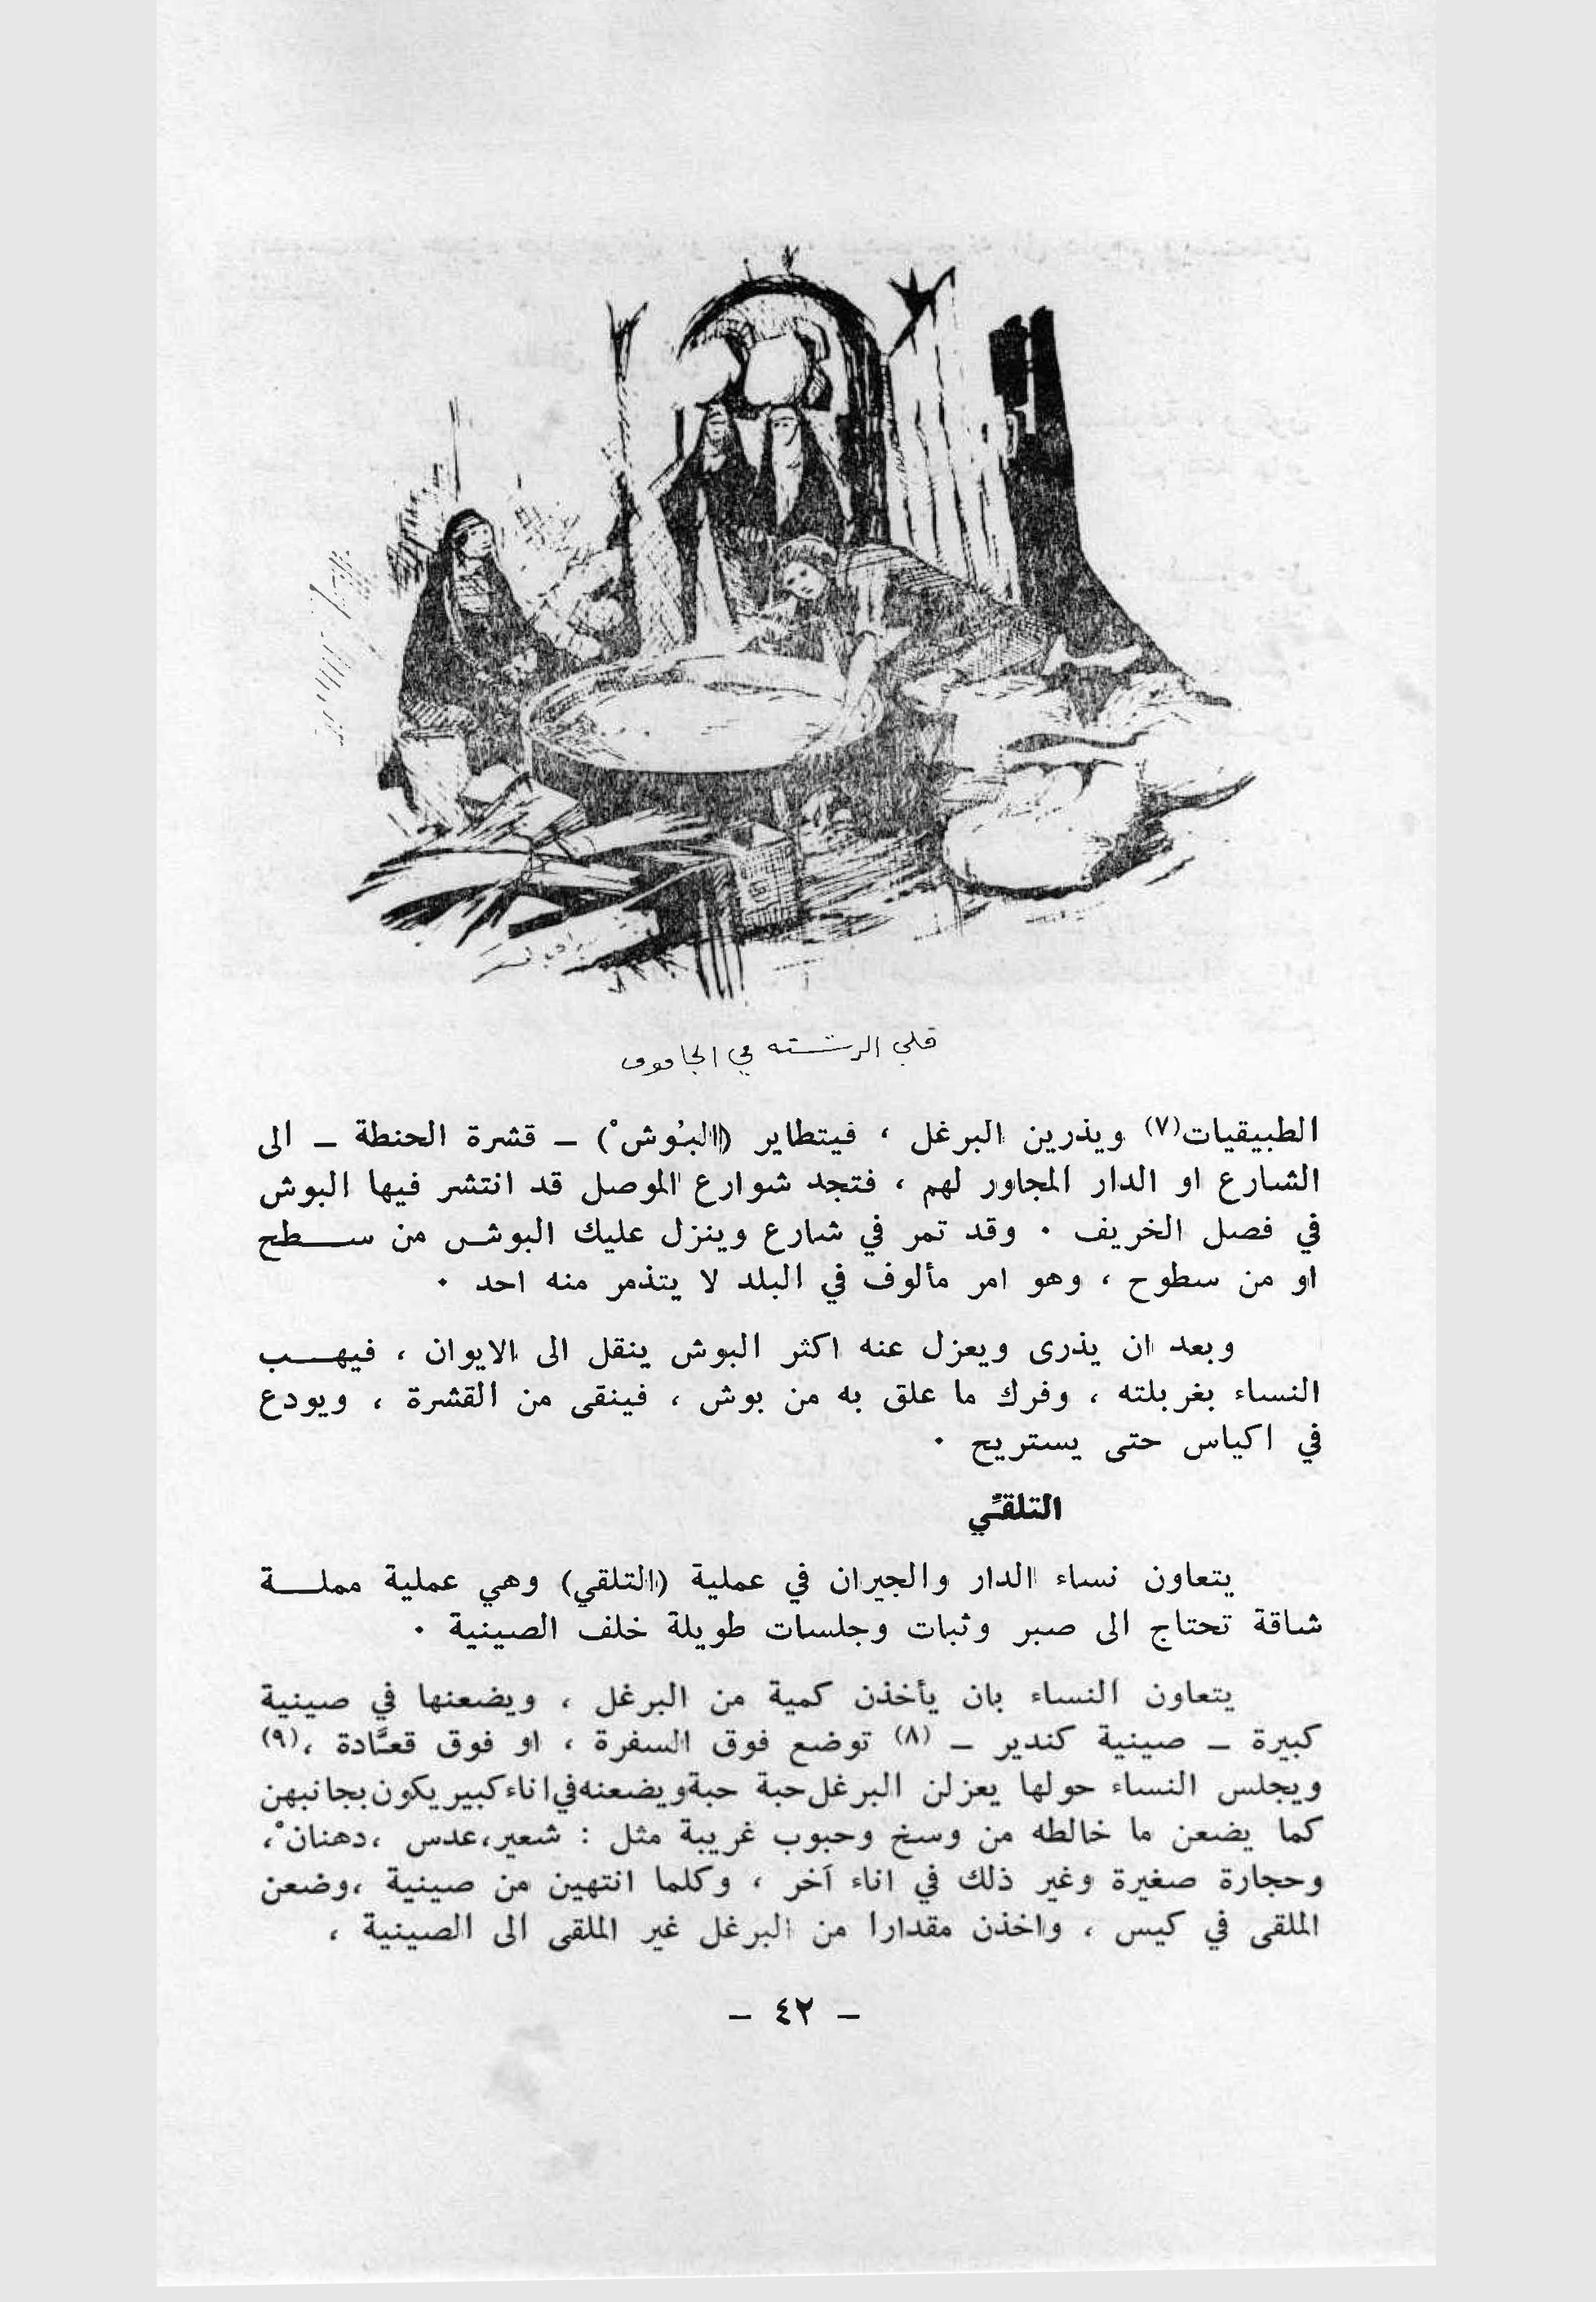 قلي الرشته في الجاموق
الطبيقيات(٧) ويذرين البرغل ، فيتطاير (البُوشْ) – قشرة الحنطة – الى
الشارع او الدار المجاور لهم ، فتجد شوارع الموصل قد انتشر فيها البوش
في فصل الخريف . وقد تمر في شارع وينزل عليك البوش من سطح
او من سطوح ، وهو امر مألوف في البلد لا يتذمر منه احد .
وبعد ان يذرى ويعزل عنه اكثر البوش ينقل الى الايوان ، فيهب
النساء بغربلته ، وفرك ما علق به من بوش ، فينقى من القشرة ، ويودع
في اكياس حتى يستريح .
التلقِّي
يتعاون نساء الدار والجيران في عملية (التلقي) وهي عملية مملة
شاقة تحتاج الى صبر وثبات وجلسات طويلة خلف الصينية .
يتعاون النساء بان يأخذن كمية من البرغل ، ويضعنها في صينية
كبيرة – صينية كندير – (٨) توضع فوق السفرة ، او فوق قعَّادة ،(٩)
ويجلس النساء حولها يعزلن البرغل حبة حبة ويضعنه في اناء كبير يكون بجانبهن
كما يضعن ما خالطه من وسخ وحبوب غريبة مثل : شعير، عدس ، دهنانْ،
وحجارة صغيرة وغير ذلك في اناء آخر ، وكلما انتهين من صينية ، وضعن
الملقى في كيس ، واخذن مقدارا من البرغل غير الملقى الى الصينية ،
– ٤٢ –